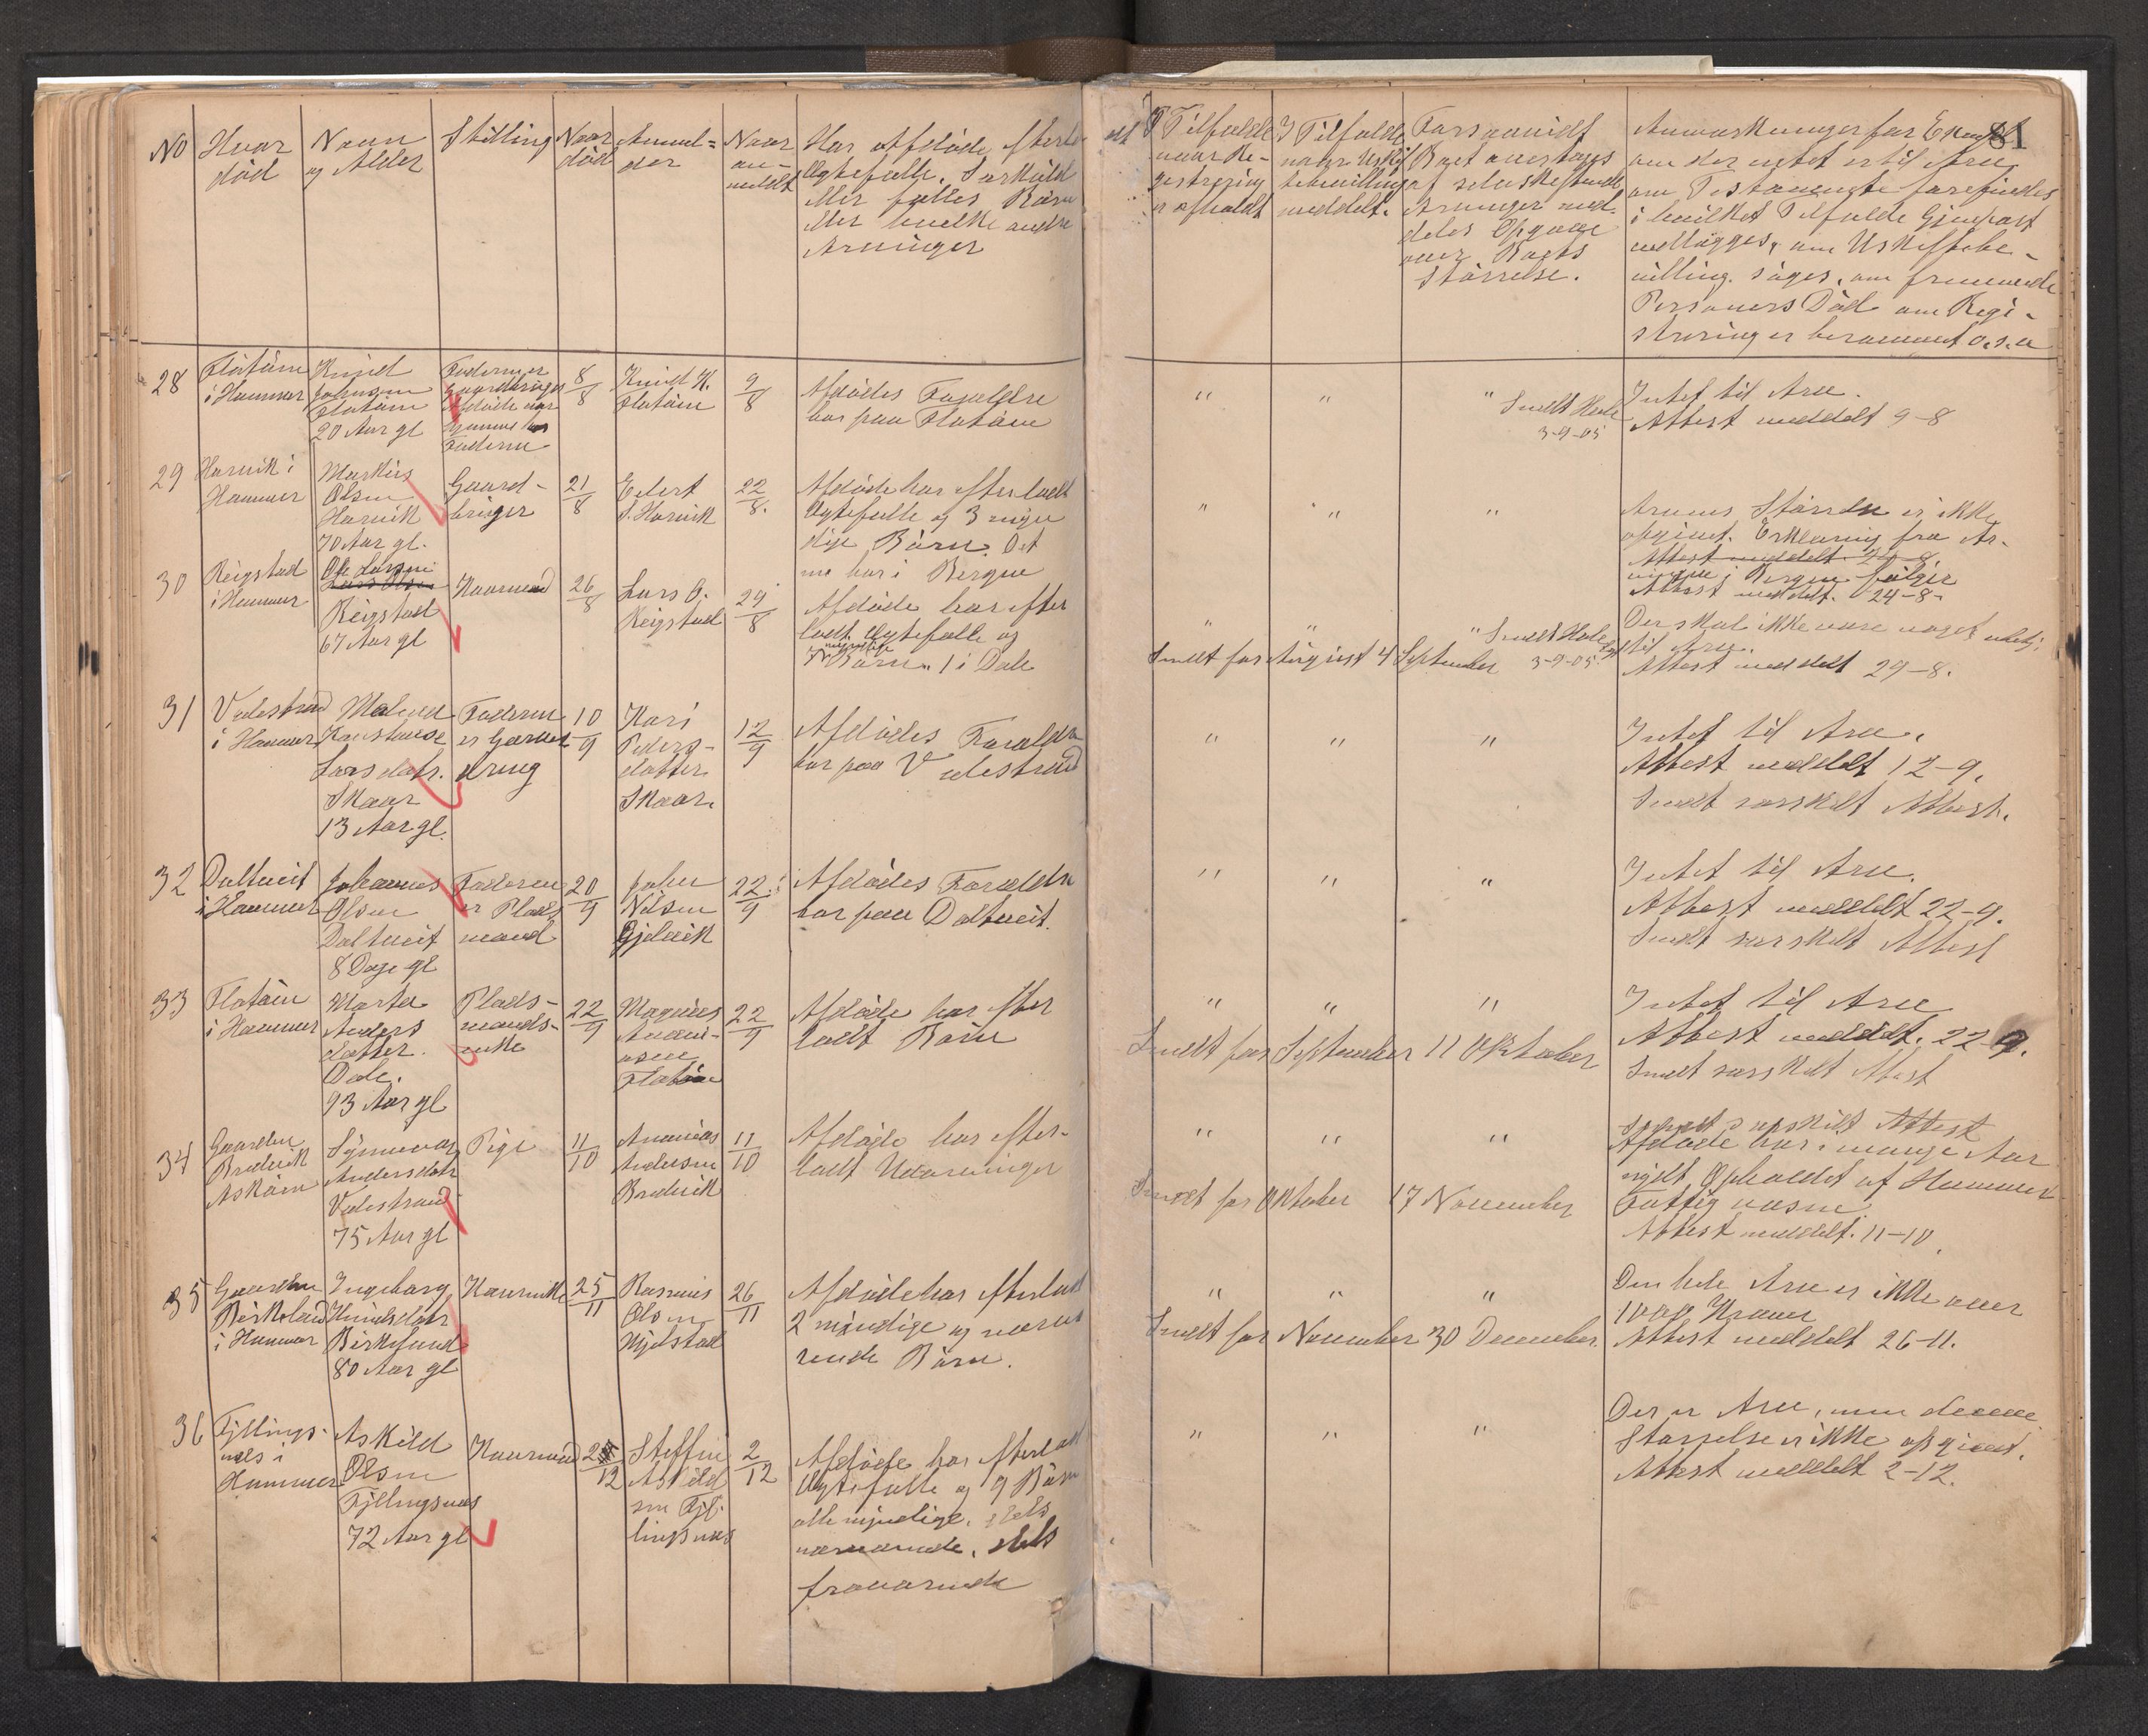 No
Hvor
død
Navn
og Alder
Stilling
Naar
død
Anmel=
der
Naar
an-
meldt
Har Afdøde efterla
Ægtefælle, Særkuld
eller fælles Børn
eller hvilke andre
Arvinger
I Tilfælde
naar Re-
gistrering
er afholdt
I Tilfælde
naar Uskif
tebevilling
meddelt.
Forsaavidt
Boet overtages
af selvskiftende
Arvinger med-
deles Opgave
over Boets
Størrelse.
81
Anmærkninger for Exempel
om der intet er til Arv
om Testamente forefindes
i hvilket Tilfælde Gjenpart
vedlægges, om Uskiftebe-
villing søges, om fremmede
Personers Død om Regi-
strering er berammet o.s.v
28
Flatøen
i Hammer
Knud
Johnsen
Flatøen
20 Aar gl
Faderen er
Gaardbruger
Afdøde var
hjemme hos
Faderen
8/8
Knud K.
Flatøen
9/8
Afdødes Forældre
bor paa Flatøen
" " "
Sendt Herle
3-9-05
Intet til Arv.
Attest meddelt 9-8
29
Horvik i
Hammer
Markus
Olsen
Horvik
70 Aar gl.
Gaard-
bruger
21/8
Eilert
S. Horvik
22/8.
Afdøde har efterladt
Ægtefælle og 3 myn
dige Børn. Det
ene bor i Bergen
" " "
Arvens Størrelse er ikke
opgivet. Erklæring fra Ar-
Attest meddelt 24-8
vingen i Bergen følger
Attest meddelt. 24-8-
30
Reigstad
i Hammer
Ole Larsen
Lars Olsen
Reigstad
67 Aar gl
Kaarmand
26/8
Lars O.
Reigstad
29/8
Afdøde har efter
ladt Ægtefælle og
myndige
Børn. 1 i Dale
" " "
Sendt Herle
3-9-05
Sendt for August 4 September
Der skal ikke være noget
til Arv.
Attest meddelt 29-8.
31
Valestrand
i Hammer
Malene
Konstanse
Larsdatr.
Skaar
13 Aar gl.
Faderen
er Garver
dreng
10/9
Kari
Peders-
datter
Skaar.
12/9
Afdødes Forældre
bor paa Valestrand
" " "
Intet til Arv.
Attest meddelt 12-9.
Sendt særskilt Attest.
32
Daltveit
i Hammer
Johannes
Olsen
Daltveit
8 Dage gl
Faderen
er Plads
mand
20/9
John
Nilsen
Gjelvik
22/9
Afdødes Forældre
bor paa Daltveit.
" " "
Intet til Arv.
Attest meddelt 22-9.
Sendt særskilt Attest
33
Flatøen
i Hammer
Marta
Anders
datter.
Dale.
93 Aar gl
Plads-
mands-
enke
22/9
Magnus
Anani-
asen
Flatøen
22/9
Afdøde har efter
ladt Børn
" " "
Sendt for September 11 Oktober
Intet til Arv
Attest meddelt. 22-9.
Sendt særskilt Attest
34
Gaarden
Bredvik
Askøen
Synneva
Andersdatr
Valestrand
75 Aar gl
Pige
11/10
Ananias
Andersen
Bredvik
11/10
Afdøde har efter-
ladt Udarvinger
" " "
Sendt for Oktober 17 November
Sendt særskilt Attest
Afdøde har i mange Aar
nydt Opholdet af Hammer
Fattigvæsen
Attest meddelt. 11-10.
35
Gaarden
Birkeland
i Hammer
Ingeborg
Knudsdatr
Birkeland
80 Aar gl
Kaarenke
25/11
Rasmus
Olsen
Mjelstad
26/11
Afdøde har efterladt
2 myndige og nærvæ
rende Børn.
" " "
Sendt for November 30 December.
Den hele Arv er ikke over
1000 Kroner
Attest meddelt 26-11.
36
Fjellings-
næs i
Hammer
Askild
Olsen
Fjellingsnæs
72 Aar gl
Kaarmand
2/12
Steffen
Askild
sen Fjel-
lingsnæs
2/12
Afdøde har efterladt
Ægtefælle og 9 Børn
alle myndige, dels
nærværende, dels
fraværende
" " "
Der er Arv, men denne
Størrelse er ikke opgivet.
Attest meddelt 2-12.